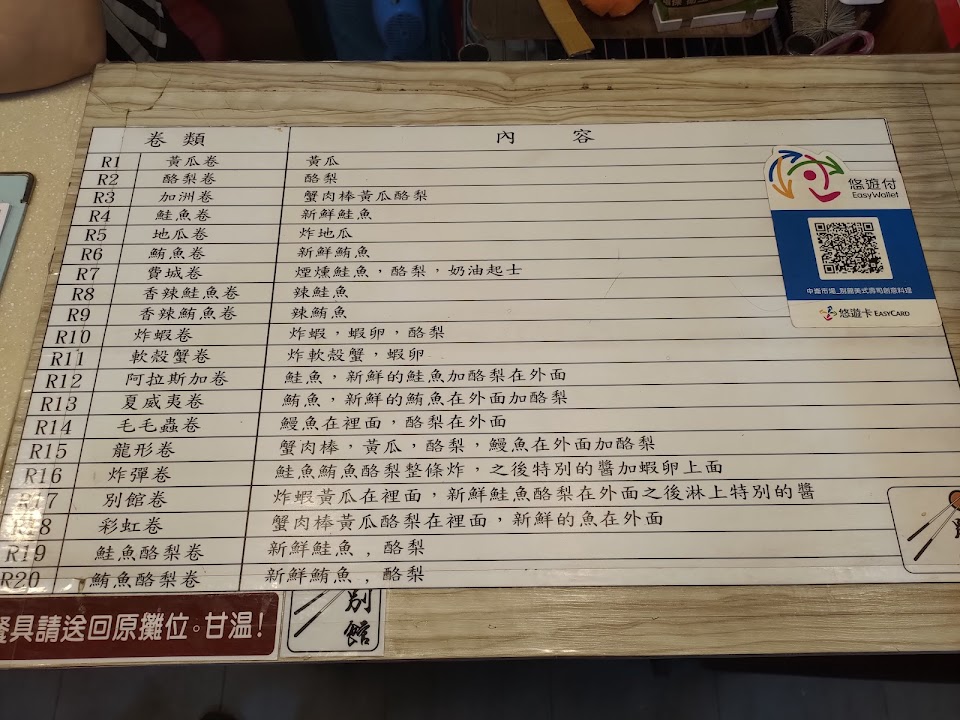 卷類 內容
R1 黃瓜卷 黃瓜
R2 酪梨卷 酪梨
R3 加洲卷 蟹肉棒黃瓜酪梨
R4 鮭魚卷 新鮮鮭魚
R5 地瓜卷 炸地瓜
R6 鮪魚卷 新鮮鮪魚
R7 費城卷 煙燻鮭魚，酪梨，奶油起士
R8 香辣鮭魚卷 辣鮭魚
R9 香辣鮪魚卷 辣鮪魚
R10 炸蝦卷 炸蝦，蝦卵，酪梨
R11 軟殼蟹卷 炸軟殼蟹，蝦卵
R12 阿拉斯加卷 鮭魚，新鮮的鮭魚加酪梨在外面
R13 夏威夷卷 鮪魚，新鮮的鮪魚在外面加酪梨
R14 毛毛蟲卷 鰻魚在裡面，酪梨在外面
R15 龍形卷 蟹肉棒，黃瓜，酪梨，鰻魚在外面加酪梨
R16 炸彈卷 鮭魚鮪魚酪梨整條炸，之後特別的醬加蝦卵上面
R17 別館卷 炸蝦黃瓜在裡面，新鮮鮭魚酪梨在外面之後淋上特別的醬
R18 彩虹卷 蟹肉棒黃瓜酪梨在裡面，新鮮的魚在外面
R19 鮭魚酪梨卷 新鮮鮭魚，酪梨
R20 鮪魚酪梨卷 新鮮鮪魚，酪梨
悠遊付
EasyWallet
悠遊卡 EASYCARD
餐具請送回原攤位。甘溫!
別館